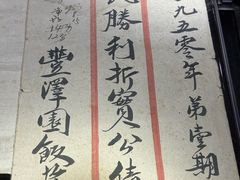 一九五零年第壹期
民勝利折實公債
豐澤園飯